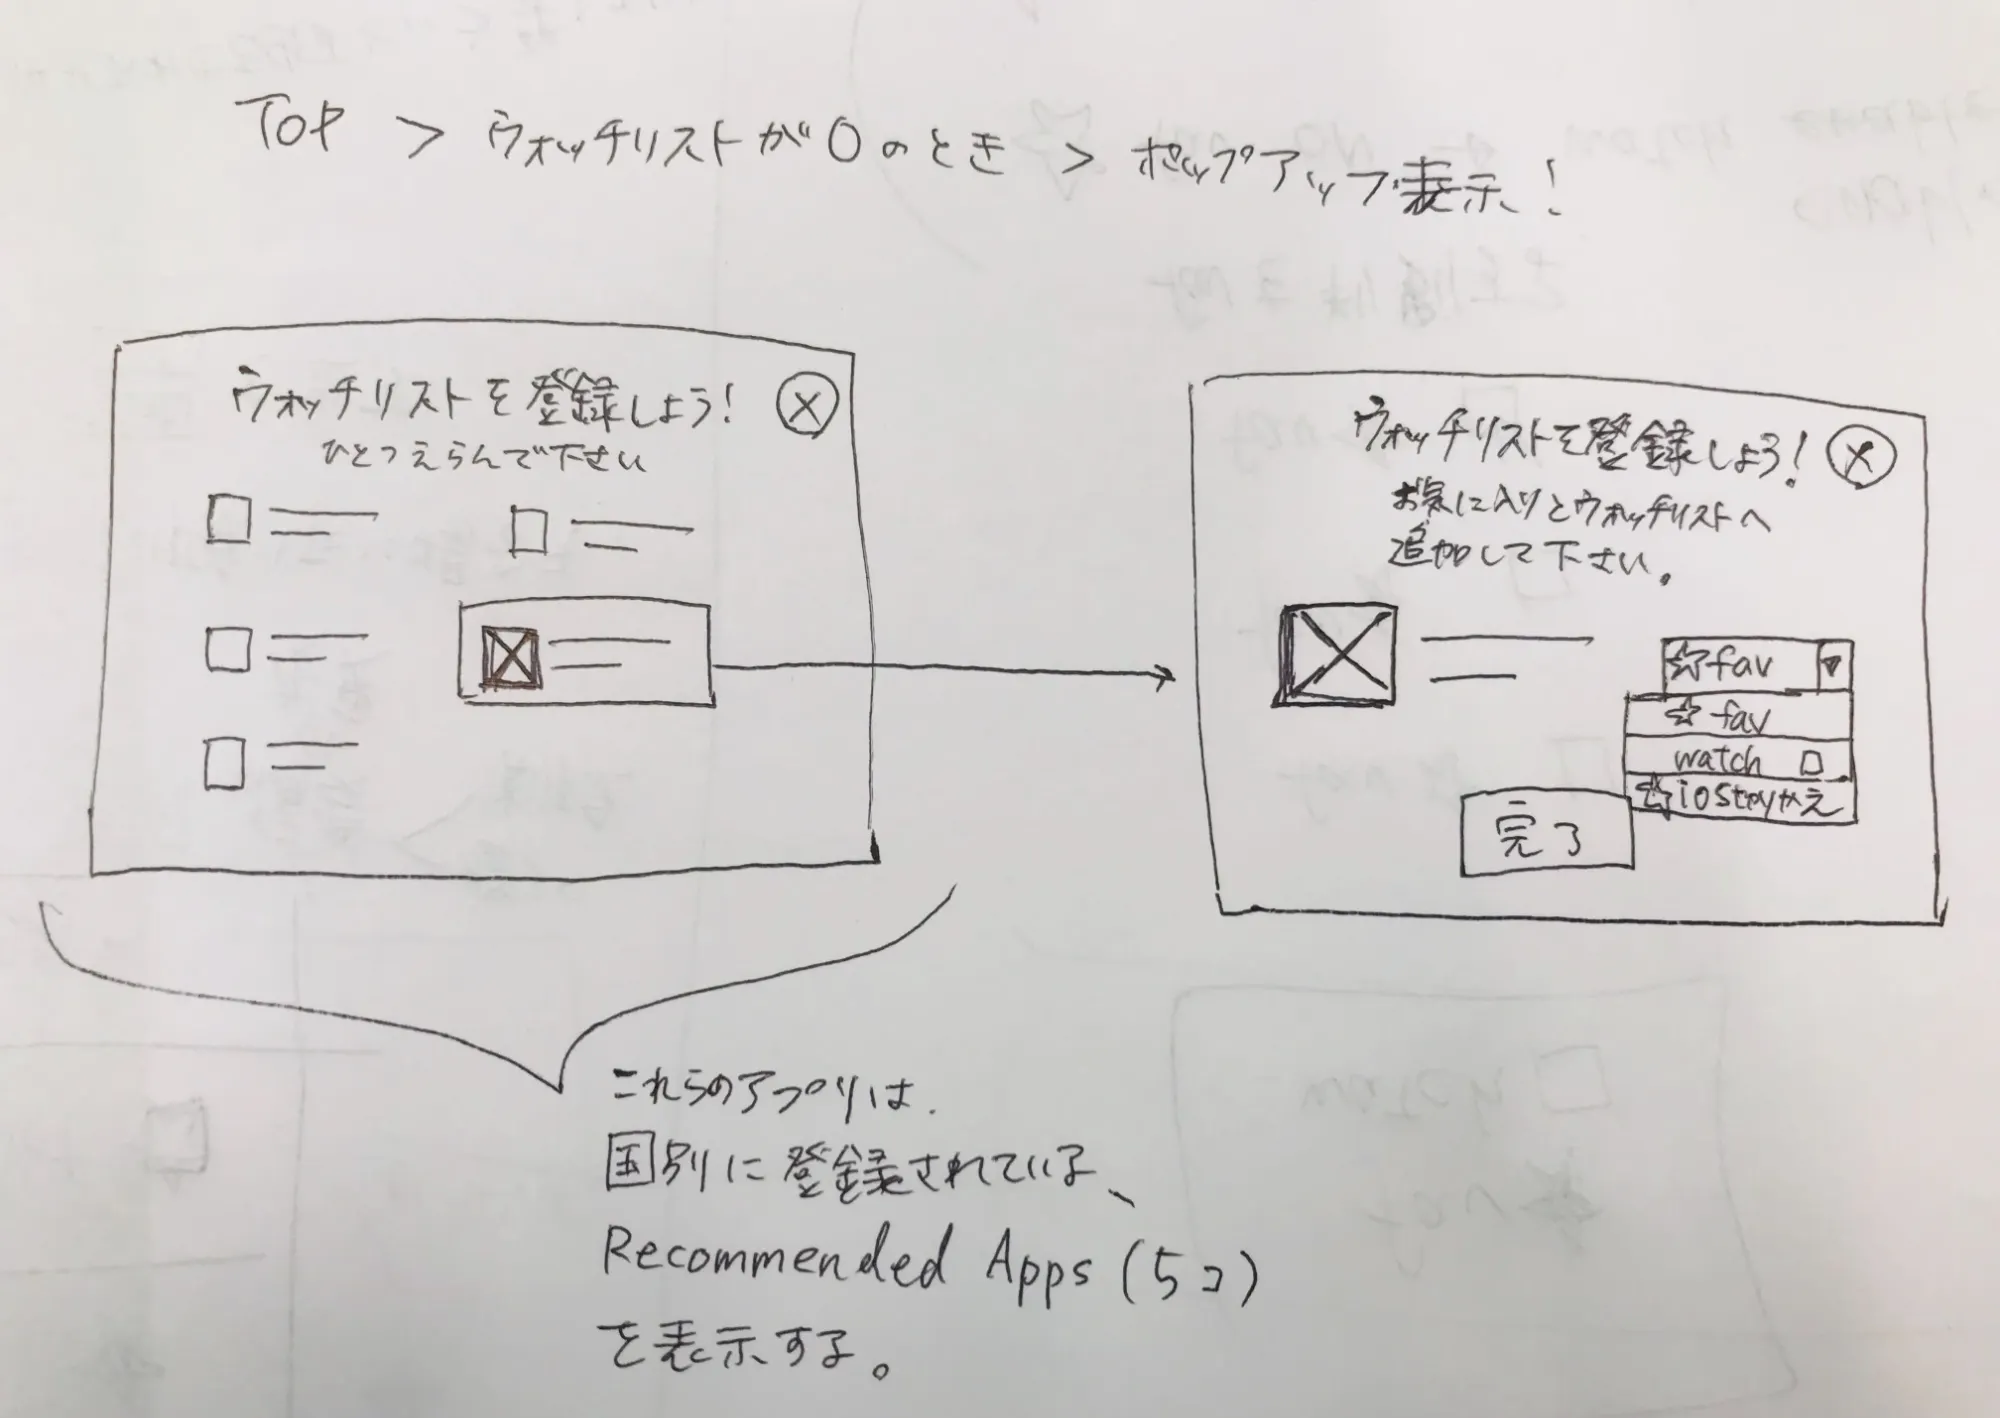 TOP > ウォッチリストが0のとき > ポップアップ表示!
ウォッチリストを登録しよう!
ひとつえらんで下さい
ウォッチリストを登録しよう!
お気に入りとウォッチリストへ
追加して下さい。
☆fav
☆fav
watch
完了
これらのアプリは、
国別に登録されている、
Recommended Apps (5コ)
を表示する。